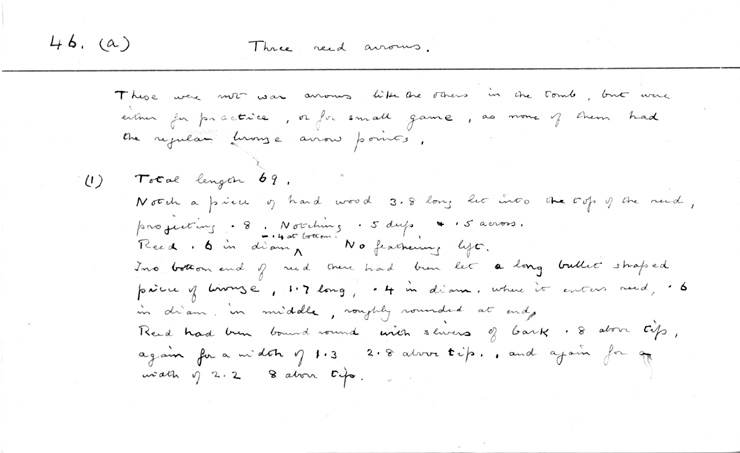 46. (a) Three reed arrows.
These were not war arrows like the others in the tomb, but were
either for practice, or for small game, as none of them had
the regular bronze arrow points.
(1) Total length 69.
Notch a piece of hard wood 3.8 long let into the top of the reed,
projecting .8. Notching .5 deep & .5 across.
Reed .6 in diam - .4 at bottom. No feathering left.
Into bottom end of reed there had been let a long bullet shaped
piece of bronze, 1.7 long, .4 in diam. where it enters reed, .6
in diam. in middle, roughly rounded at end.
Reed had been bound round with slivers of bark .8 above tip,
again for a width of 1.3 2.8 above tip., and again for a
width of 2.2 8 above tip.